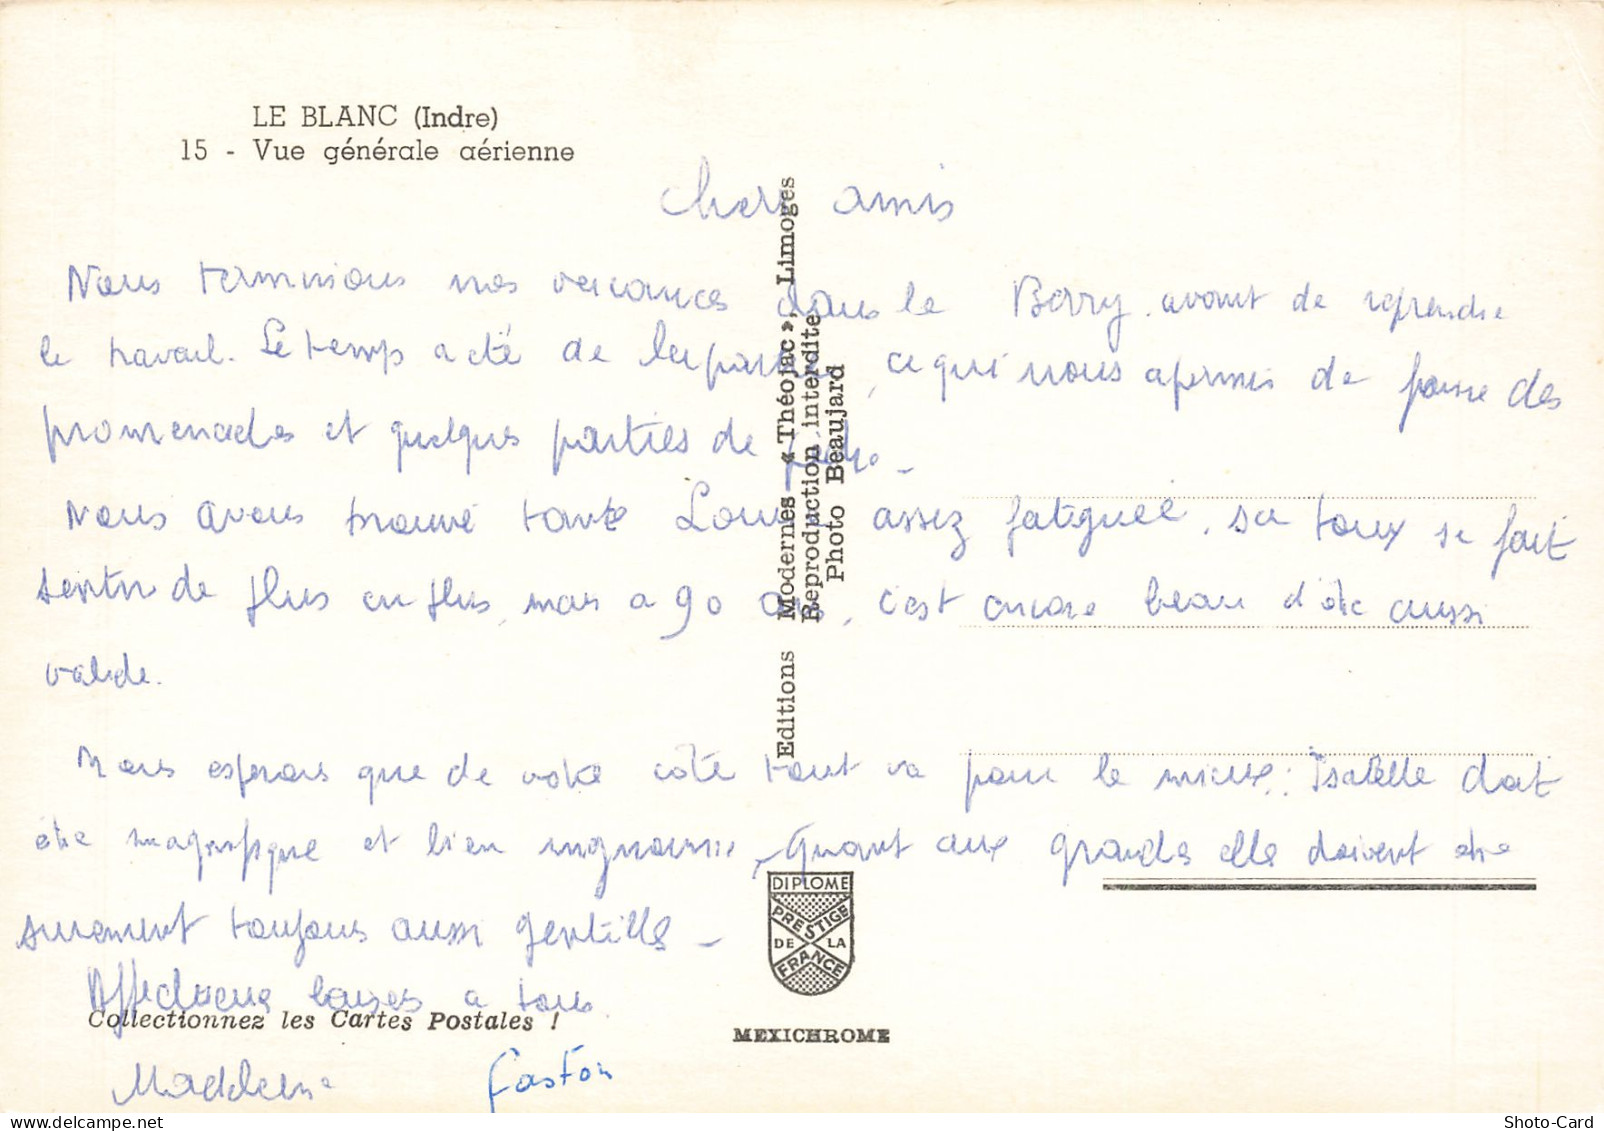 LE BLANC (Indre)
15 - Vue générale aérienne
Chers amis
Nous terminons nos vacances dans le Berry avant de reprendre
le travail. Le temps a été de la partie, ce qui nous a permis de faire des
promenades et quelques parties de pêche -
Nous avons trouvé tante Louise assez fatiguée, sa toux se fait
sentir de plus en plus, mais a 90 ans, c'est encore beau d'être aussi
valide.
Nous esperons que de votre côté tout va pour le mieux. Isabelle doit
être magnifique et bien mignonne. Quant aux grandes elles doivent être
surement toujours aussi gentilles -
Affectueux baisers a tous.
Madeleine Gaston
Editions Modernes « Théojac », Limoges
Reproduction interdite
Photo Beaujard
DIPLOME
PRESTIGE
DE LA
FRANCE
Collectionnez les Cartes Postales !
MEXICHROME
Shoto-Card